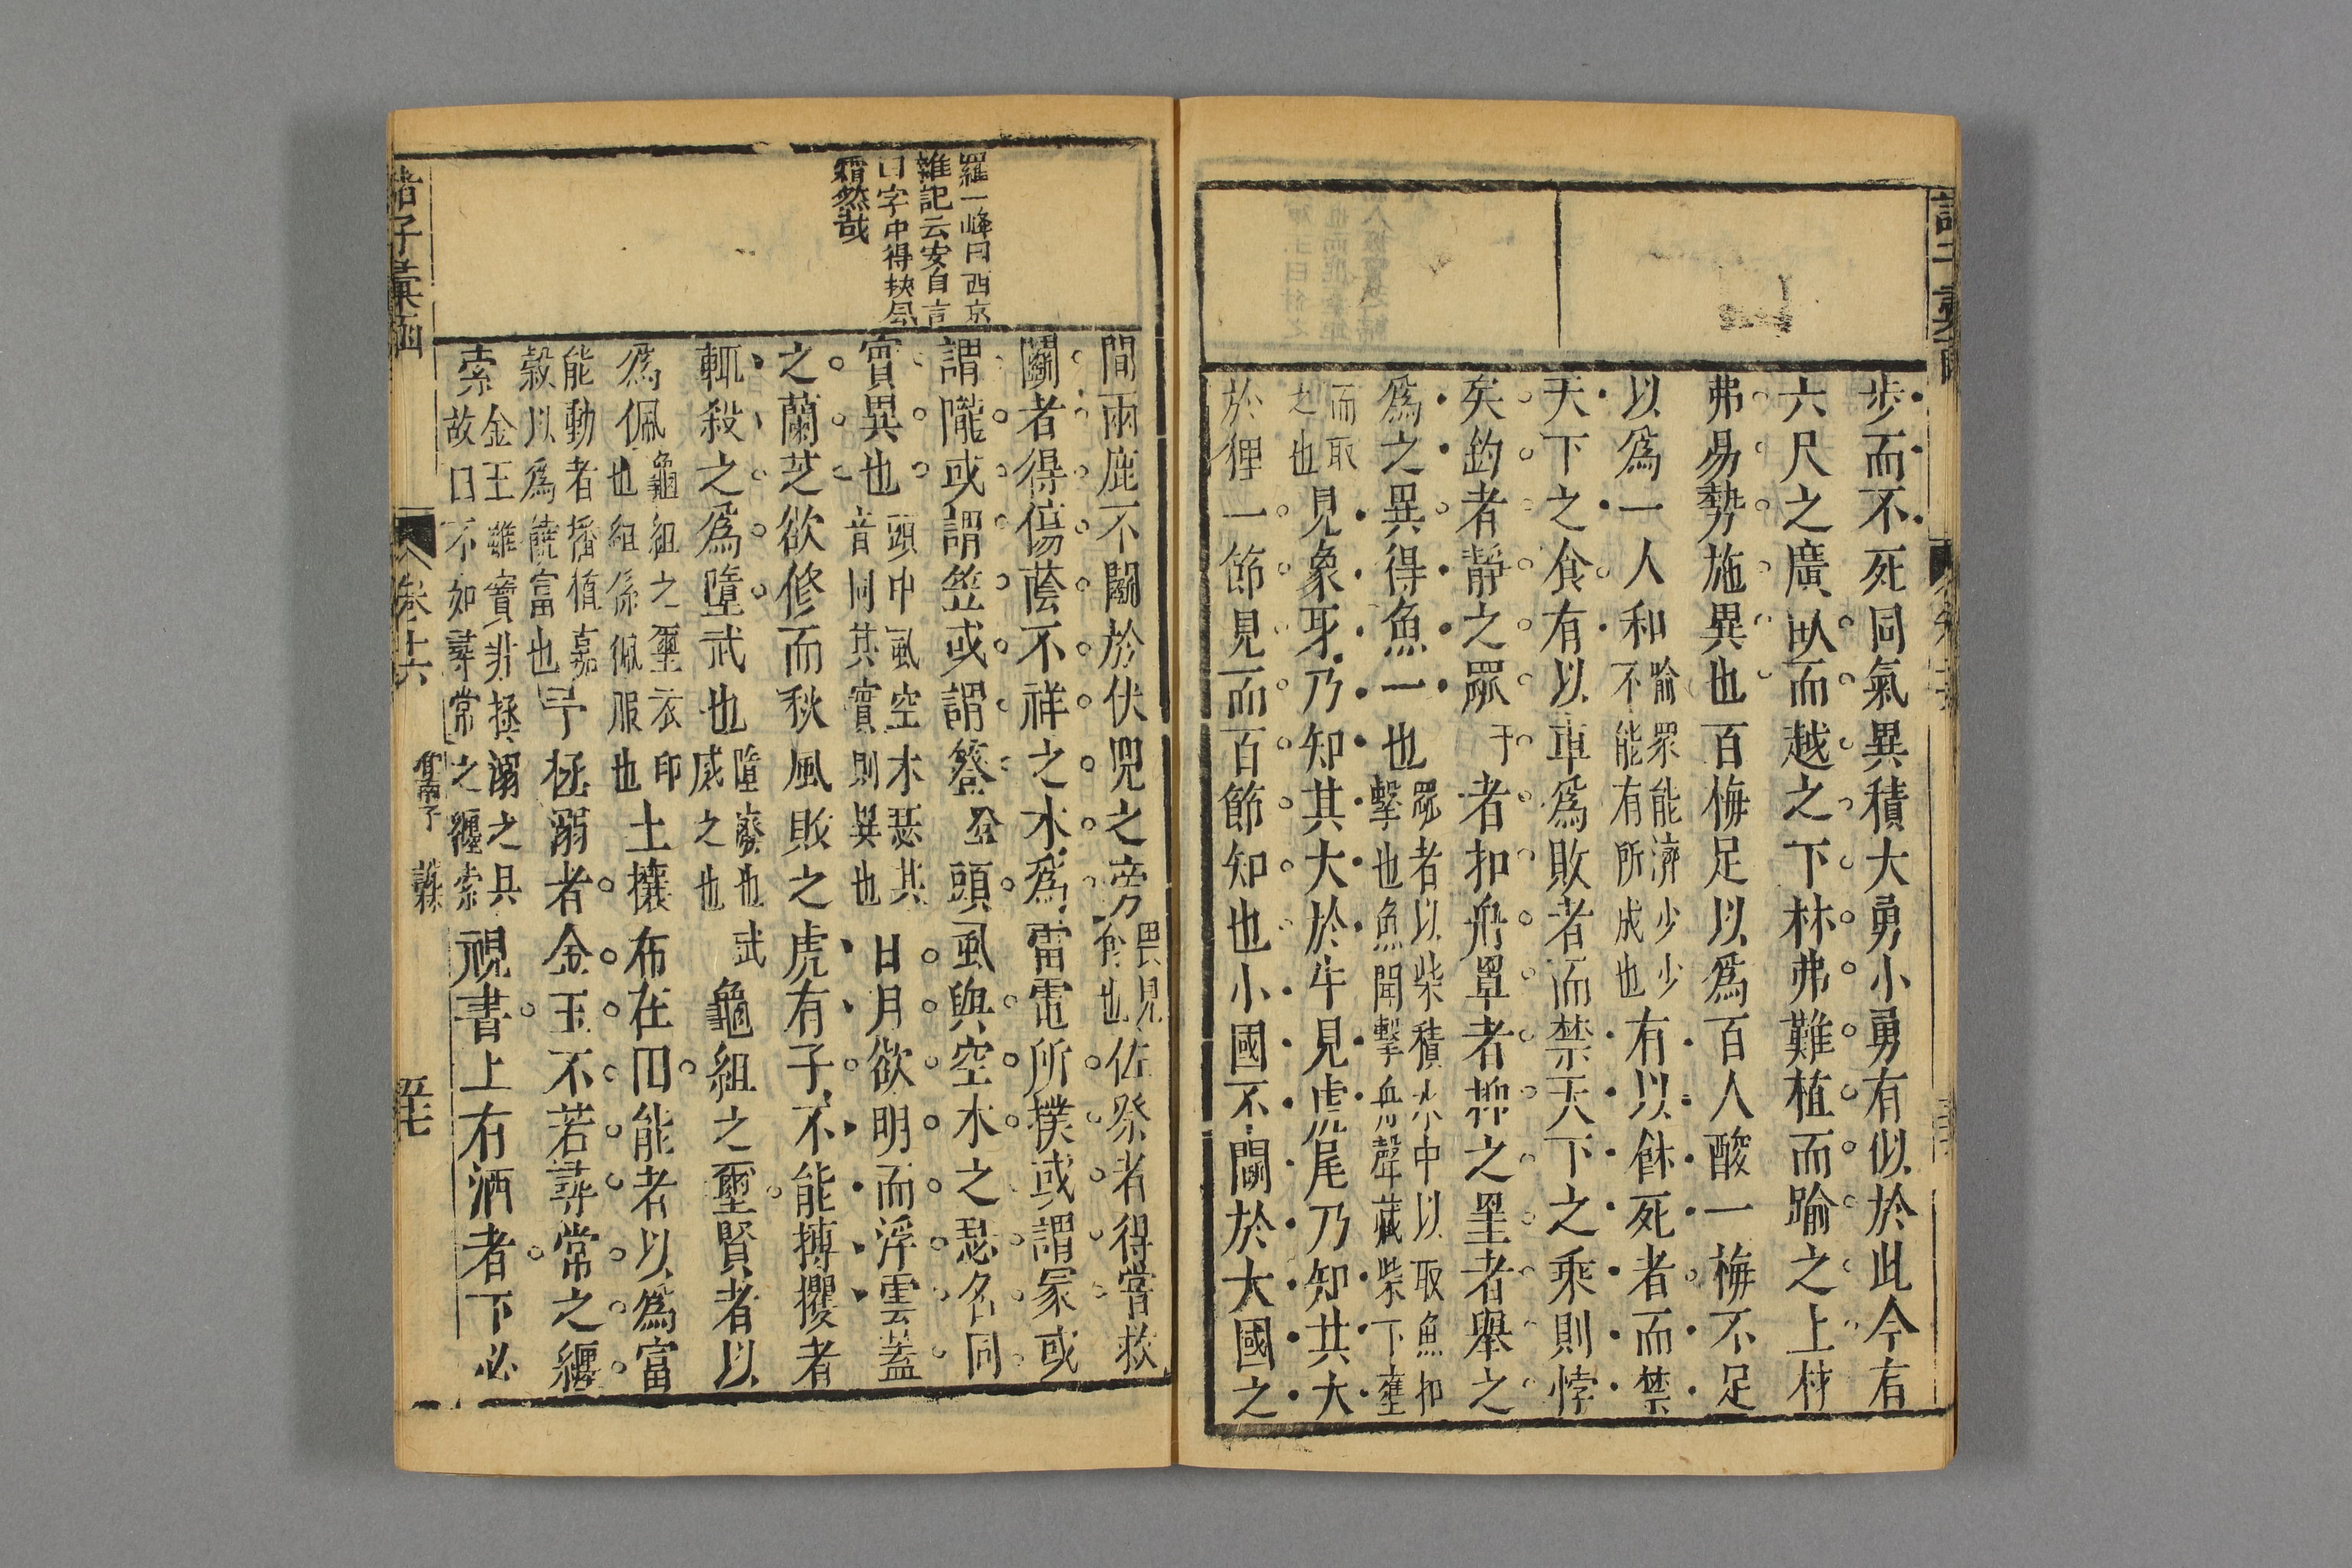 步而不死同氣異積大勇小勇有似於此今有
六尺之廣臥而越之下林弗難植而踰之上材
弗易勢施異也百梅足以爲百人酸一梅不足
以爲一人和喻眾能濟少少
不能有所成也有以飯死者而禁
天下之食有以車爲敗者而禁天下之乘則悖
矣釣者靜之罧者扣舟罩者抑之罣者舉之
爲之異得魚一也罧者以柴積水中以取魚扣
擊也魚聞擊舟聲藏柴下壅
而取
之也見象牙乃知其大於牛見虎尾乃知其大
於狸一節見而百節知也小國不鬬於大國之
羅一峰曰西京
雜記云安自言
曰字中得挾風
霜然哉
間兩鹿不鬬於伏兕之旁畏見
食也佐祭者得嘗救
鬬者得傷蔭不祥之木爲雷電所撲或謂冡或
謂隴或謂笠或謂簦頭虱與空木之瑟名同
實異也頭中虱空木瑟其
音同其實則異也日月欲明而浮雲蓋
之蘭芝欲修而秋風敗之虎有子不能搏攫者
輒殺之爲墮武也墮廢也武
威之也龜組之璽賢者以
爲佩龜組之璽衣印
也組係佩服也土壤布在田能者以爲富
能動者播植嘉
穀以爲饒富也予拯溺者金玉不若尋常之纆
索金玉雖寶非拯溺之具
故曰不如尋常之纆索視書上有酒者下必
諸子彙函
卷十六